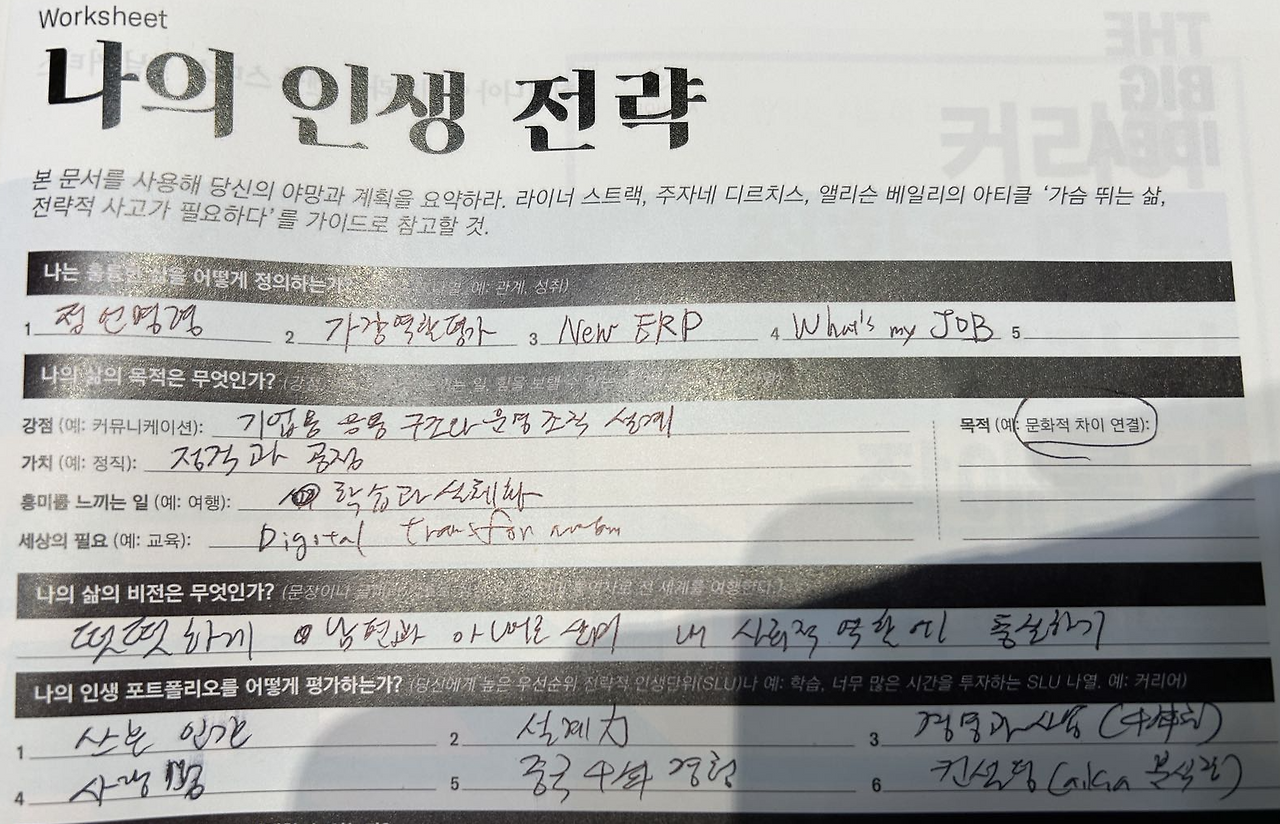 Worksheet
나의 인생 전략
본 문서를 사용해 당신의 야망과 계획을 요약하라. 라이너 스트랙, 주자네 디르치스, 앨리슨 베일리의 아티클 ‘가슴 뛰는 삶,
전략적 사고가 필요하다’를 가이드로 참고할 것.
나는 훌륭한 삶을 어떻게 정의하는가? 예: 관계, 성취)
1 정언명령 2 가감역할평가 3 New ERP 4 What's my JOB 5
나의 삶의 목적은 무엇인가? (강점
강점 (예: 커뮤니케이션): 기업용 응용 구조와 운영 조직 설계
목적 (예: 문화적 차이 연결):
가치 (예: 정직): 정직과 공정
흥미를 느끼는 일 (예: 여행): 학습과 실체화
세상의 필요 (예: 교육): Digital transformation
나의 삶의 비전은 무엇인가? (문장이나 전 세계를 여행한다.)
떳떳하게 남편과 아버로 살며 내 사회적 역할에 충실하기
나의 인생 포트폴리오를 어떻게 평가하는가? (당신에게 높은 우선순위 전략적 인생단위(SLU)나 예: 학습, 너무 많은 시간을 투자하는 SLU 나열. 예: 커리어)
1 산본 인간 2 설계力 3 경영과
4 사랑 5 중국 경험 6 컨설팅 (aka 분석관)